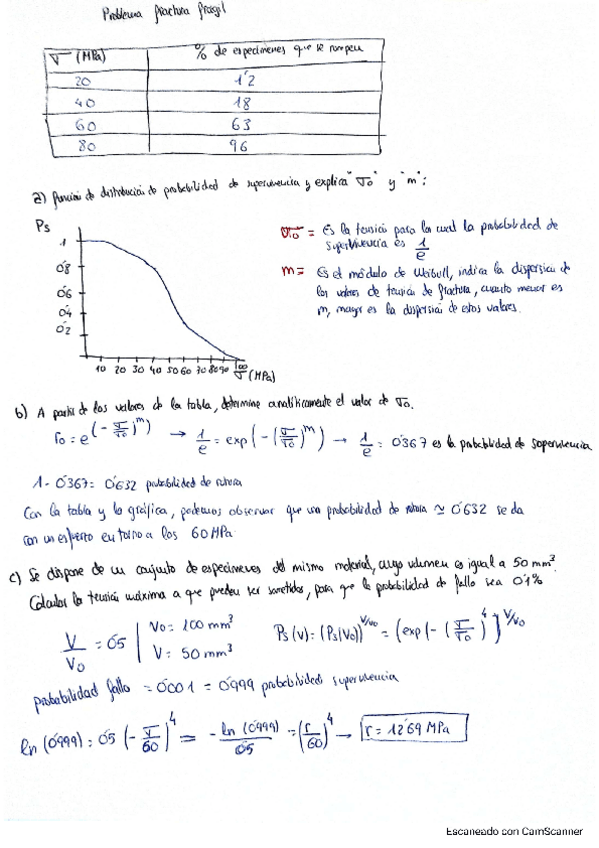 Problema fractura frágil
σ (MPa) % de especímenes que se rompen
20 1'2
40 18
60 63
80 96
a) función de distribución de probabilidad de supervivencia y explica "σo" y "m":
Ps
1
0'8
0'6
0'4
0'2
10 20 30 40 50 60 70 80 90 100
σ (MPa)
σo = Es la tensión para la cual la probabilidad de
supervivencia es 1/e
m = Es el módulo de Weibull, indica la dispersión de
los valores de tensión de fractura, cuanto menor es
m, mayor es la dispersión de estos valores.
b) A partir de los valores de la tabla, determine analíticamente el valor de σo.
= e^(-(σ/σo)^m) → 1/e = exp(-(σ/σo)^m) → 1/e = 0'367 es la probabilidad de supervivencia
1 - 0'367 = 0'632 probabilidad de rotura
Con la tabla y la gráfica, podemos observar que una probabilidad de rotura ≃ 0'632 se da
con un esfuerzo en torno a los 60 MPa
c) Se dispone de un conjunto de especímenes del mismo material, cuyo volumen es igual a 50 mm³.
Calcular la tensión máxima a que pueden ser sometidos, para que la probabilidad de fallo sea 0'1%
V/Vo = 0'5 | Vo = 100 mm³
V = 50 mm³
Ps(V) = (Ps(Vo))^(V/Vo) = (exp(-(σ/σo)^4))^(V/Vo)
probabilidad fallo = 0'001 = 0'999 probabilidad supervivencia
ln (0'999) = 0'5 (-σ/60)^4 = -ln (0'999)/0'5 = (σ/60)^4 → σ = 12'69 MPa
Escaneado con CamScanner